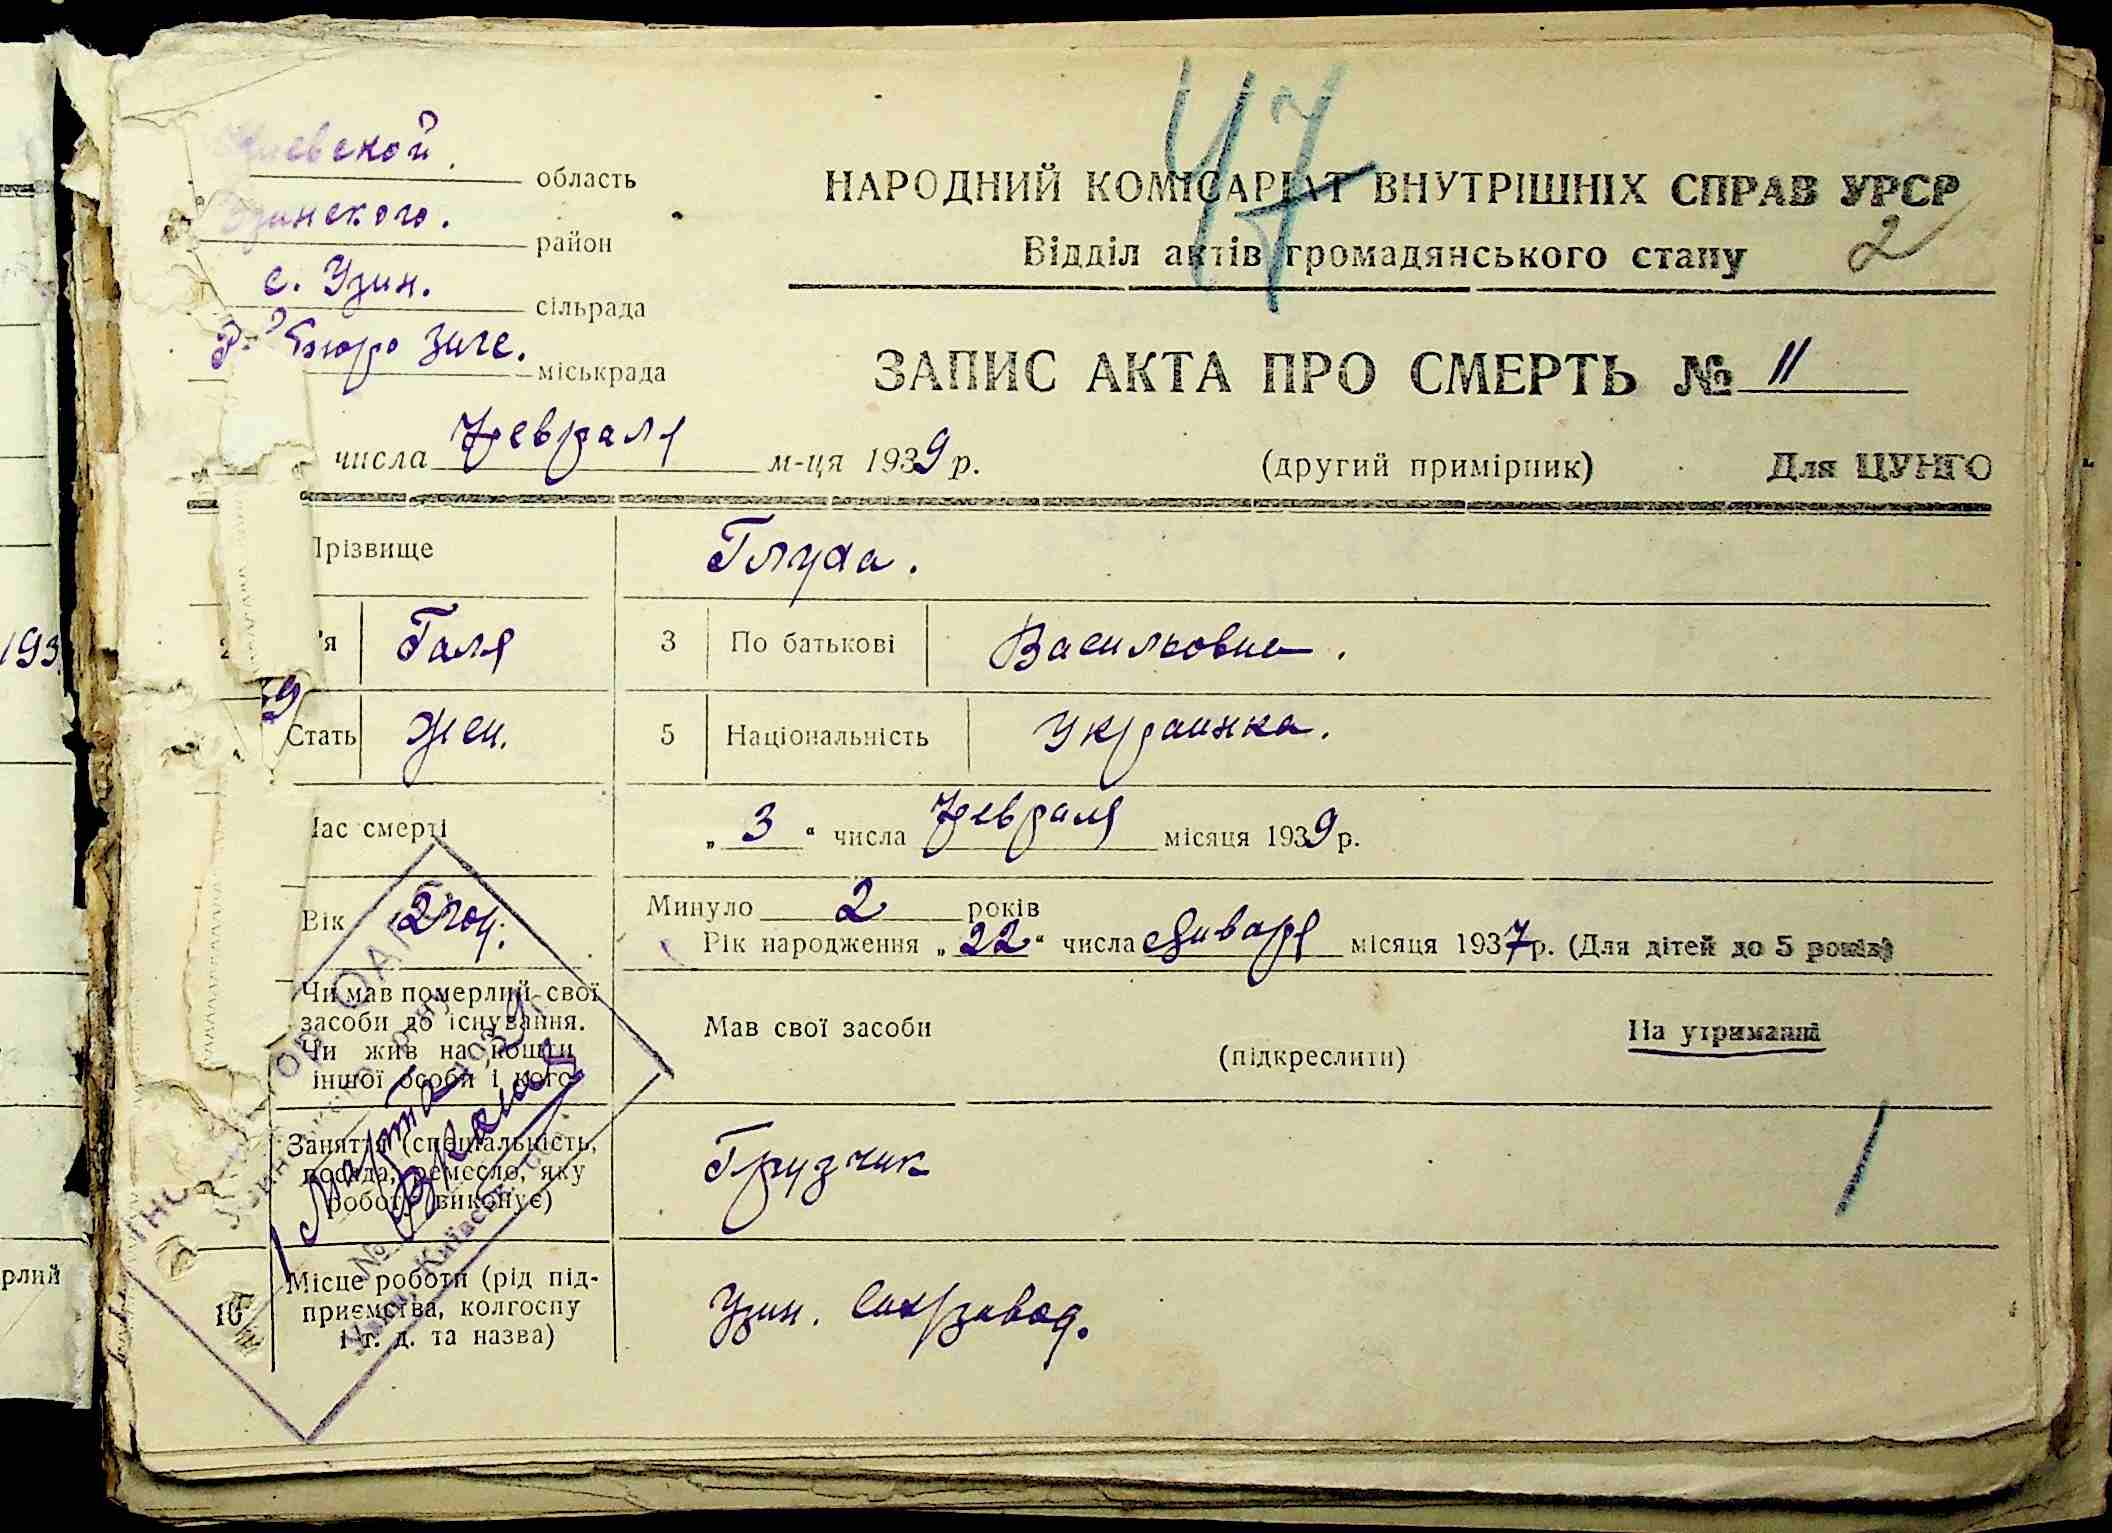 47
Киевской. область
Узинского. район
с. Узин. сільрада
бюро загс. міськрада
НАРОДНИЙ КОМІСАРІАТ ВНУТРІШНІХ СПРАВ УРСР
Відділ актів громадянського стану 2
ЗАПИС АКТА ПРО СМЕРТЬ № 11
числа Февраля м-ця 1939 р. (другий примірник) Для ЦУНГО
Прізвище Глуха.
'я Галя 3 По батькові Васильовна.
Стать Жен. 5 Національність Украинка.
Час смерті „3“ числа Февраля місяця 1939 р.
Вік 2 год. Минуло 2 років
Рік народження „22“ числа Января місяця 1937 р. (Для дітей до 5 років)
Чи мав померлий свої засоби до існування.
Чи жив на кошти іншої особи і кого
Мав свої засоби (підкреслити) На утриманні
Заняття (спеціальність, посада, ремесло, яку роботу виконує) Грузчик
10 Місце роботи (рід підприємства, колгоспу і т. д. та назва) Узин. Сахзавод.
193
рлий